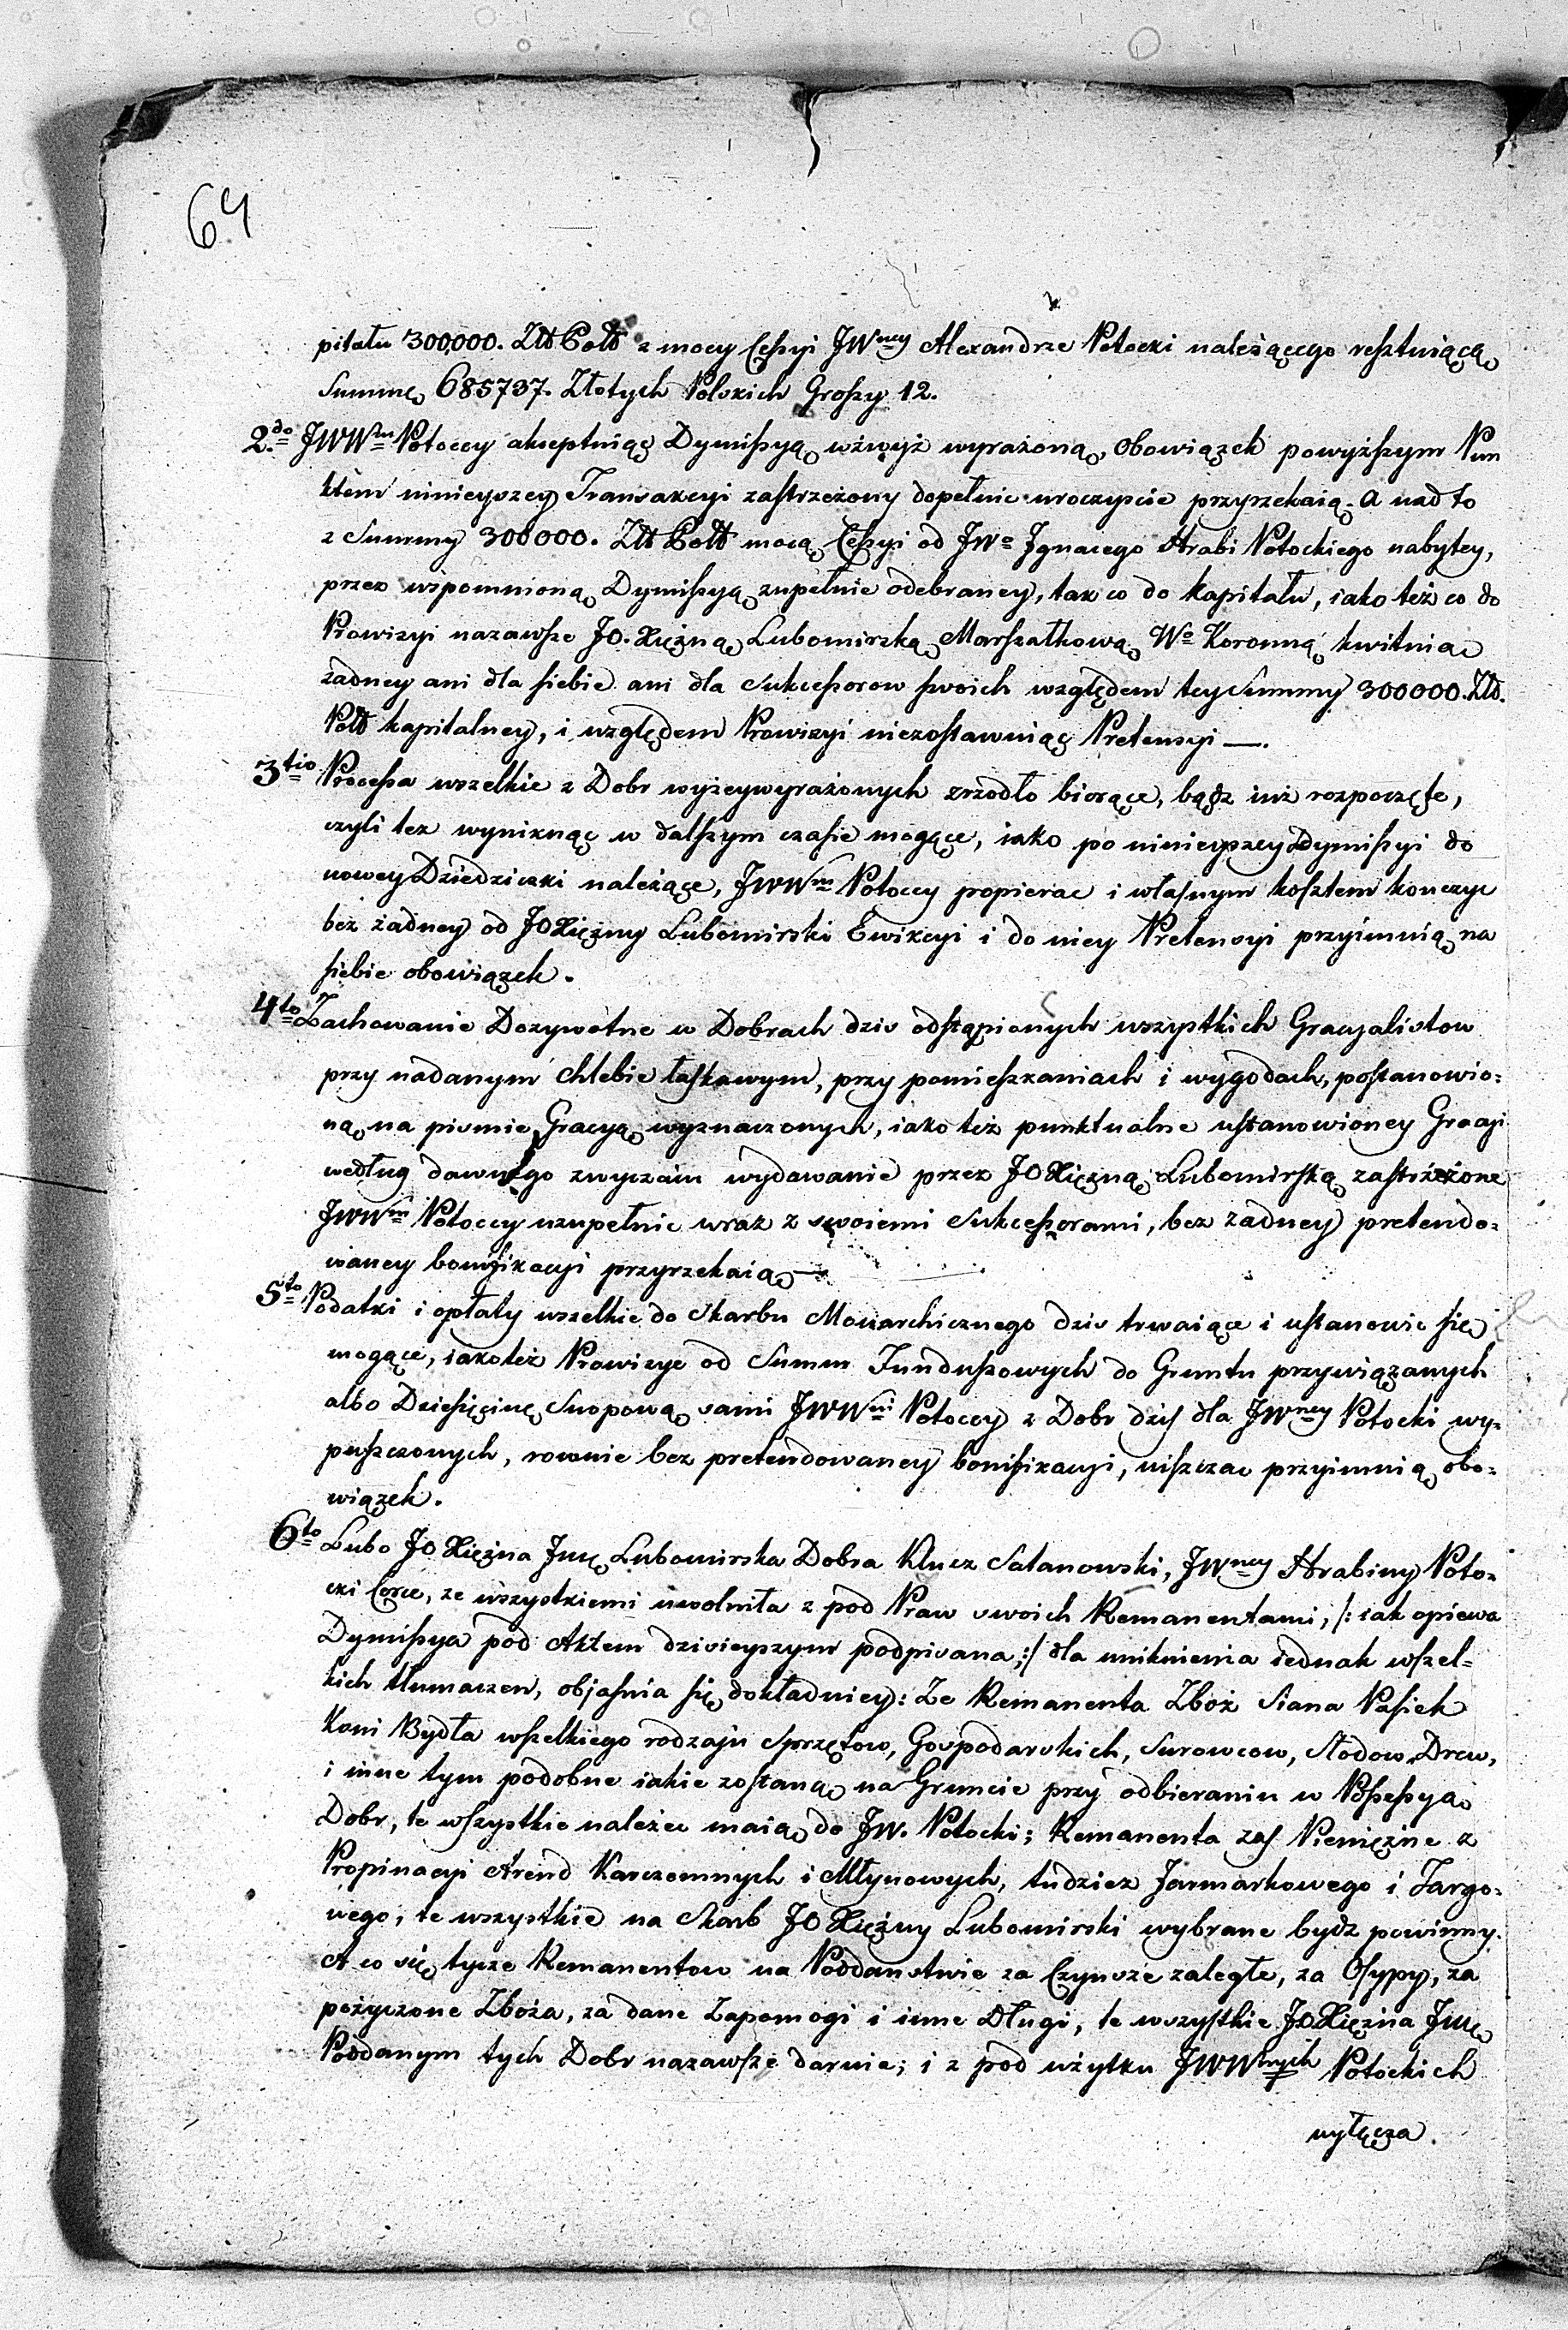 64
pitału 300,000. Złł Poll z mocy Cessyi JWney Alexandrze Potocki należącego resztuiącą
Summę 685737. Złotych Polskich Groszy 12.
2do JWWni Potoccy akceptuiąc Dymissyą wzwyż wyrażoną, obowiązek powyższym Pun
ktem ninieyszey Transakcyi zastrzeżony dopełnic uroczyscie przyrzekaią. a nad to
z Summy 300000. Złł Poll mocą Cessyi od JWo Jgnacego Hrabi Potockiego nabytey,
przez wspomnioną Dymissyą zupełnie odebraney, tak co do kapitału, iako też co do
Prowizyi nazawsze JO. Xiężną Lubomirską Marszałkową Wo Koronną kwituiac
żadney ani dla siebie ani dla Sukcessorow swoich względem tey Summy 300000. Złł.
Poll kapitalney, i względem Prowizyi niezostawuiąc Pretensyi —.
3tio Processa wszelkie z Dobr wyżeywyrażonych zrzodło biorące, bądz iuż rozpoczęte,
czyli tez wyniknąc w dalszym czasie mogące, iako po ninieyszey Dymissyi do
nowey Dziedziczki należące, JWWni Potoccy popierac i własnym kosztem konczyc
bez żadney od JO Xiężny Lubomirski Ewikcyi i do niey Pretensyi przyimuią na
siebie obowiązek.
4to Zachowanie Dozywotne w Dobrach dzis odstąpionych wszystkich Gracyalistow
przy nadanym chlebie łaskawym, przy pomieszkaniach i wygodach, postanowio=
ną na pismie Gracyą wyznaczonych, iako też punktualne ustanowioney Gracyi
według dawnego zwyczaiu wydawanie przez JO Xiężną Lubomirską zastrzeżone
JWWni Potoccy uzupełnic wraz z swoiemi Sukcessorami, bez żadney pretendo=
waney bonifikacyi przyrzekaią —
5to Podatki i opłaty wszelkie do Skarbu Monarchicznego dzis trwaiące i ustanowic się
mogące, iakoteż Prowizye od Summ Funduszowych do Gruntu przywiązanych
albo Dziesięcinę Snopową sami JWWni Potoccy z Dobr dzis dla JWney Potocki wy=
puszczonych, rownie bez pretendowaney bonifikacyi, uiszczac przyimuią obo=
wiązek.
6to Lubo JO Xiężna Jmę Lubomirska Dobra Klucz Satanowski, JWney Hrabiny Poto=
cki Corce, ze wszystkiemi uwolniła z pod Praw swoich Remanentami, /: iak opiewa
Dymissya pod Aktem dzisieyszym podpisana ;/ dla uniknienia iednak wszel=
kich tłumaczen, objasnia się dokładniey: Ze Remanenta Zboż Siana Pasiek
Koni Bydła wszelkiego rodzaju Sprzętow, Gospodarskich, Surowcow, Słodow, Drew,
i inne tym podobne iakie zostaną na Gruncie przy odbieraniu w Possessyą
Dobr, te wszystkie należec maią do JW. Potocki; Remanenta zas Pieniężne z
Propinacyi Arend Karczemnych i Młynowych, tudziez Jarmarkowego i Targo=
wego, te wszystkie na Skarb JO Xiężny Lubomirski wybrane bydz powinny.
A co się tycze Remanentow na Poddanstwie za Czynsze zaległe, za Osypy, za
pożyczone Zboża, za dane Zapomogi i inne Długi, te wszystkie JO Xiężna Jmę
Poddanym tych Dobr nazawsze daruie; i z pod użytku JWWnych Potockich
wyłącza.